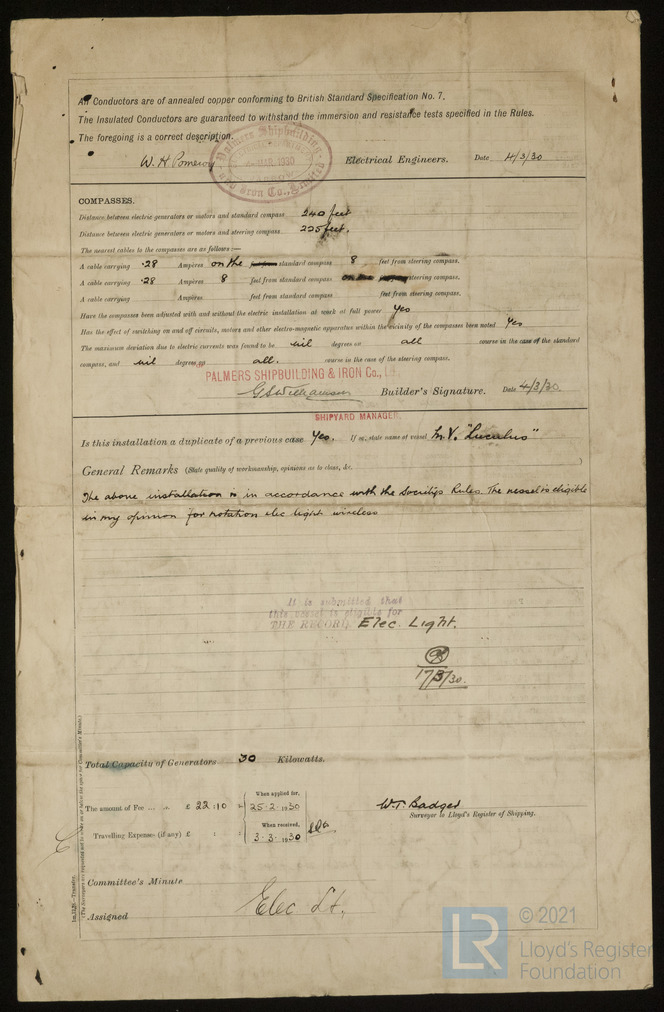 All Conductors are of annealed copper conforming to British Standard Specification No. 7.
The Insulated Conductors are guaranteed to withstand the immersion and resistance tests specified in the Rules.
The foregoing is a correct description.
W. H. Pomeroy Electrical Engineers. Date 4/3/30
Palmers Shipbuilding
MAR. 1930
and Iron Co., Limited
COMPASSES.
Distance between electric generators or motors and standard compass 240 feet
Distance between electric generators or motors and steering compass 225 feet.
The nearest cables to the compasses are as follows:—
A cable carrying .28 Ampères on the standard compass 8 feet from steering compass.
A cable carrying .28 Ampères 8 feet from standard compass on the steering compass.
A cable carrying Ampères feet from standard compass feet from steering compass.
Have the compasses been adjusted with and without the electric installation at work at full power Yes
Has the effect of switching on and off circuits, motors and other electro-magnetic apparatus within the vicinity of the compasses been noted Yes
The maximum deviation due to electric currents was found to be nil degrees on all course in the case of the standard
compass, and nil degrees on all. course in the case of the steering compass.
PALMERS SHIPBUILDING & IRON Co.,
Builder's Signature. Date 4/3/30.
SHIPYARD MANAGER.
Is this installation a duplicate of a previous case Yes. If so, state name of vessel M.V. "Luculus"
General Remarks (State quality of workmanship, opinions as to class, &c. )
The above installation is in accordance with the Society's Rules The vessel is eligible
in my opinion for notation elec light wireless
It is submitted that
this vessel is eligible for
THE RECORD, Elec. Light.
17/3/30.
Total Capacity of Generators 30 Kilowatts.
The amount of Fee ... .. £ 22 : 10 : When applied for, 25.2.1930
Travelling Expenses (if any) £ : : When received, 3.3.1930
W. T. Badger
Surveyor to Lloyd's Register of Shipping.
Committee's Minute
Assigned Elec Lt.
LR
© 2021
Lloyd's Register
Foundation